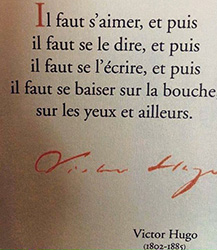 Il faut s'aimer, et puis
il faut se le dire, et puis
il faut se l'écrire, et puis
il faut se baiser sur la bouche
sur les yeux et ailleurs.
Victor Hugo
Victor Hugo
(1802-1885)